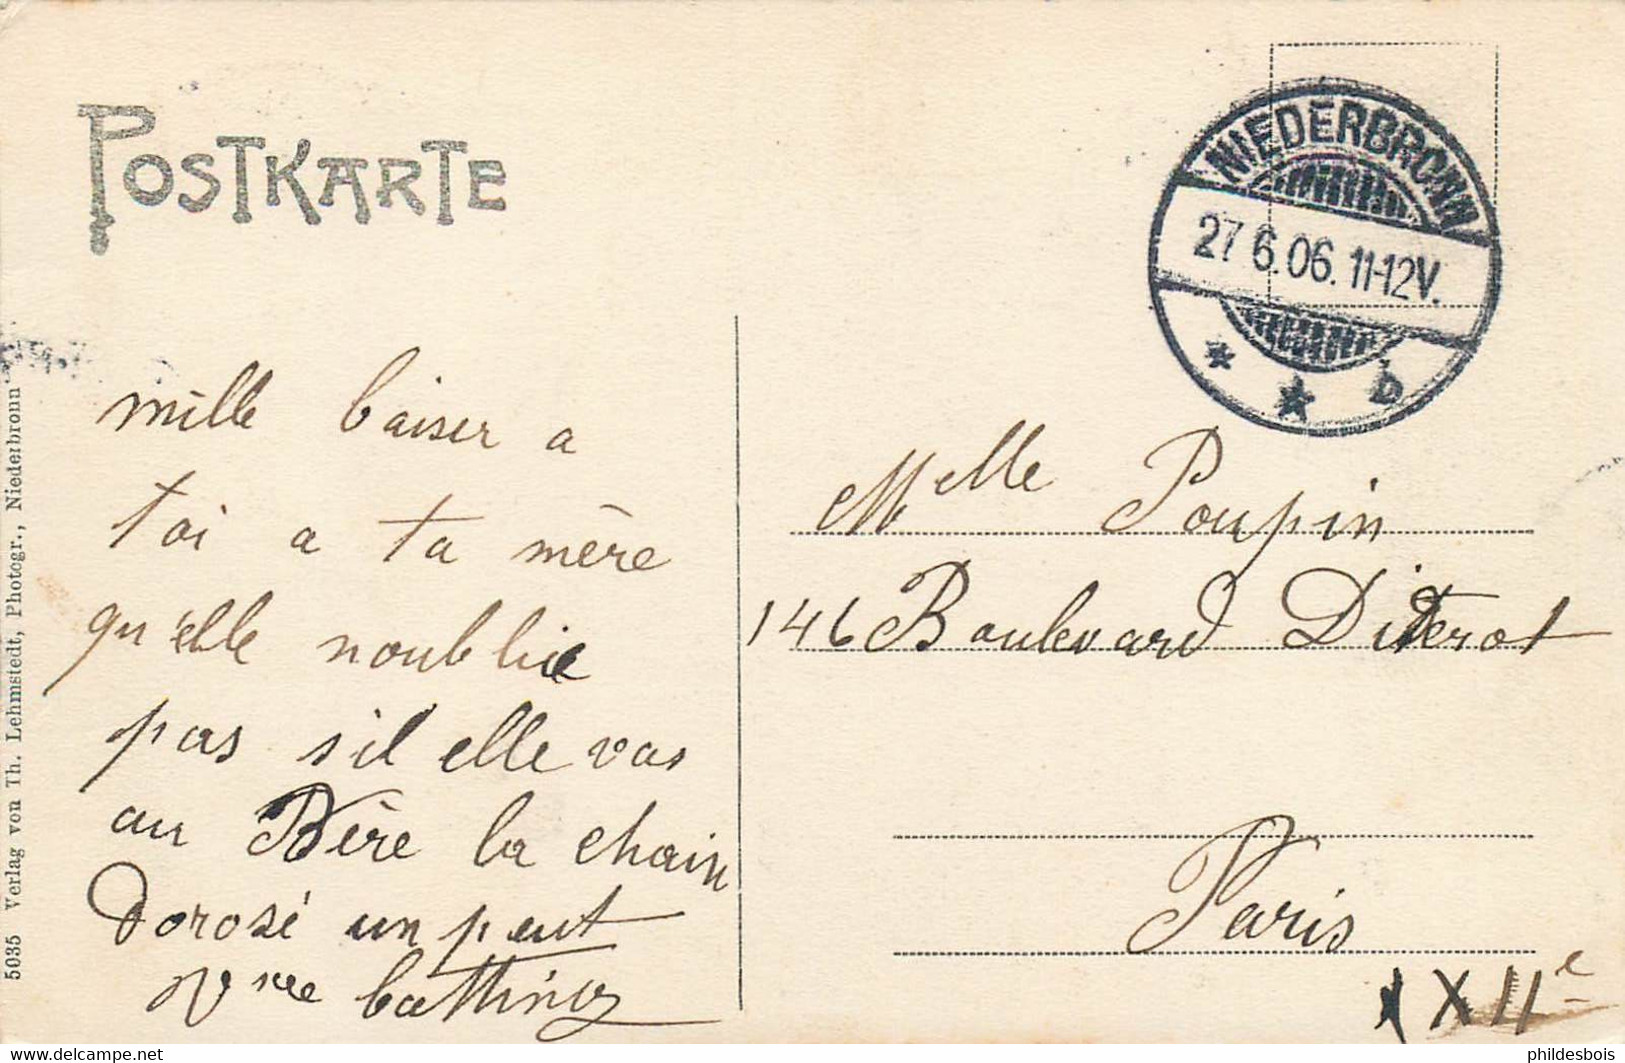 POSTKARTE
NIEDERBRONN
27 6.06. 11-12V.
* * b
mille baiser a
toi a ta mère
qu'elle noublie
pas s'il elle vas
au Père la chain
dorosé un peut
Vve
Melle Poupin
146 Boulevard Diderot
Paris
XIIe
5035 Verlag von Th. Lehmstedt, Photogr., Niederbronn
phildesbois